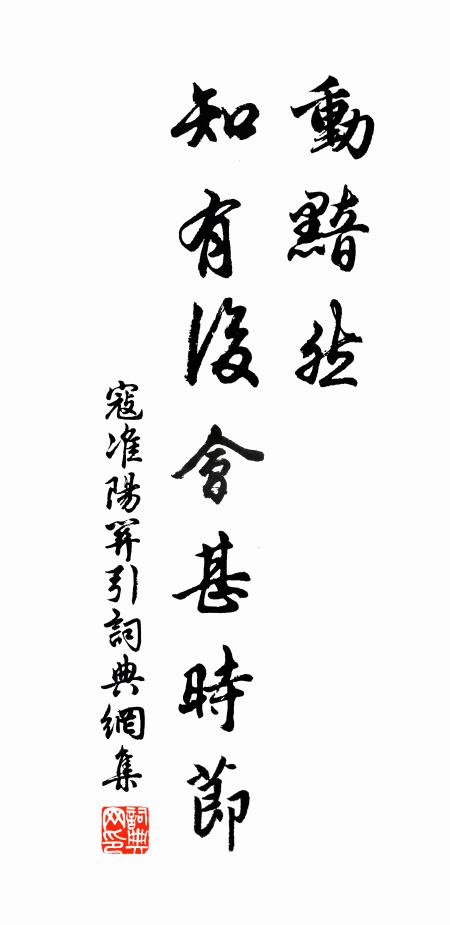 動黯然
知有後會甚時節
寇准陽關引詞典網集
詞典網印